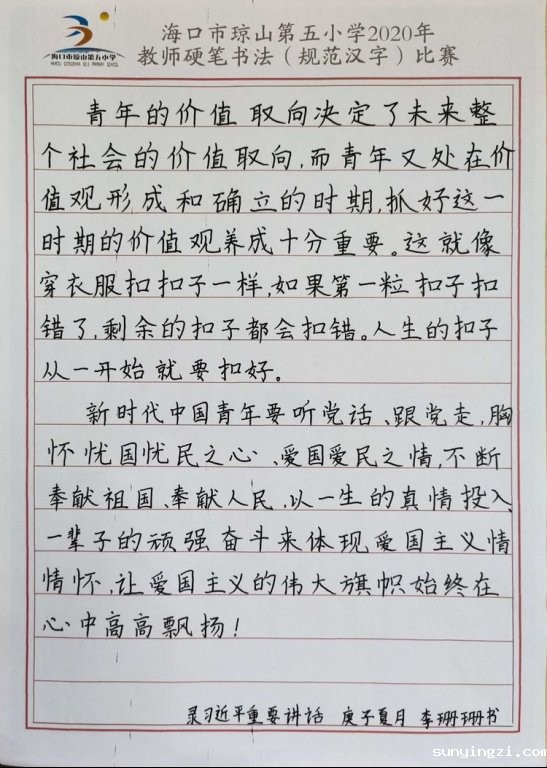 海口市琼山第五小学2020年
教师硬笔书法（规范汉字）比赛
海口市琼山第五小学
青年的价值取向决定了未来整
个社会的价值取向,而青年又处在价
值观形成和确立的时期,抓好这一
时期的价值观养成十分重要。这就像
穿衣服扣扣子一样,如果第一粒扣子扣
错了,剩余的扣子都会扣错。人生的扣子
从一开始就要扣好。
新时代中国青年要听党话、跟党走,胸
怀忧国忧民之心、爱国爱民之情,不断
奉献祖国、奉献人民,以一生的真情投入、
一辈子的顽强奋斗来体现爱国主义情
情怀,让爱国主义的伟大旗帜始终在
心中高高飘扬!
录习近平重要讲话 庚子夏月 李珊珊书
sunyingzi.com